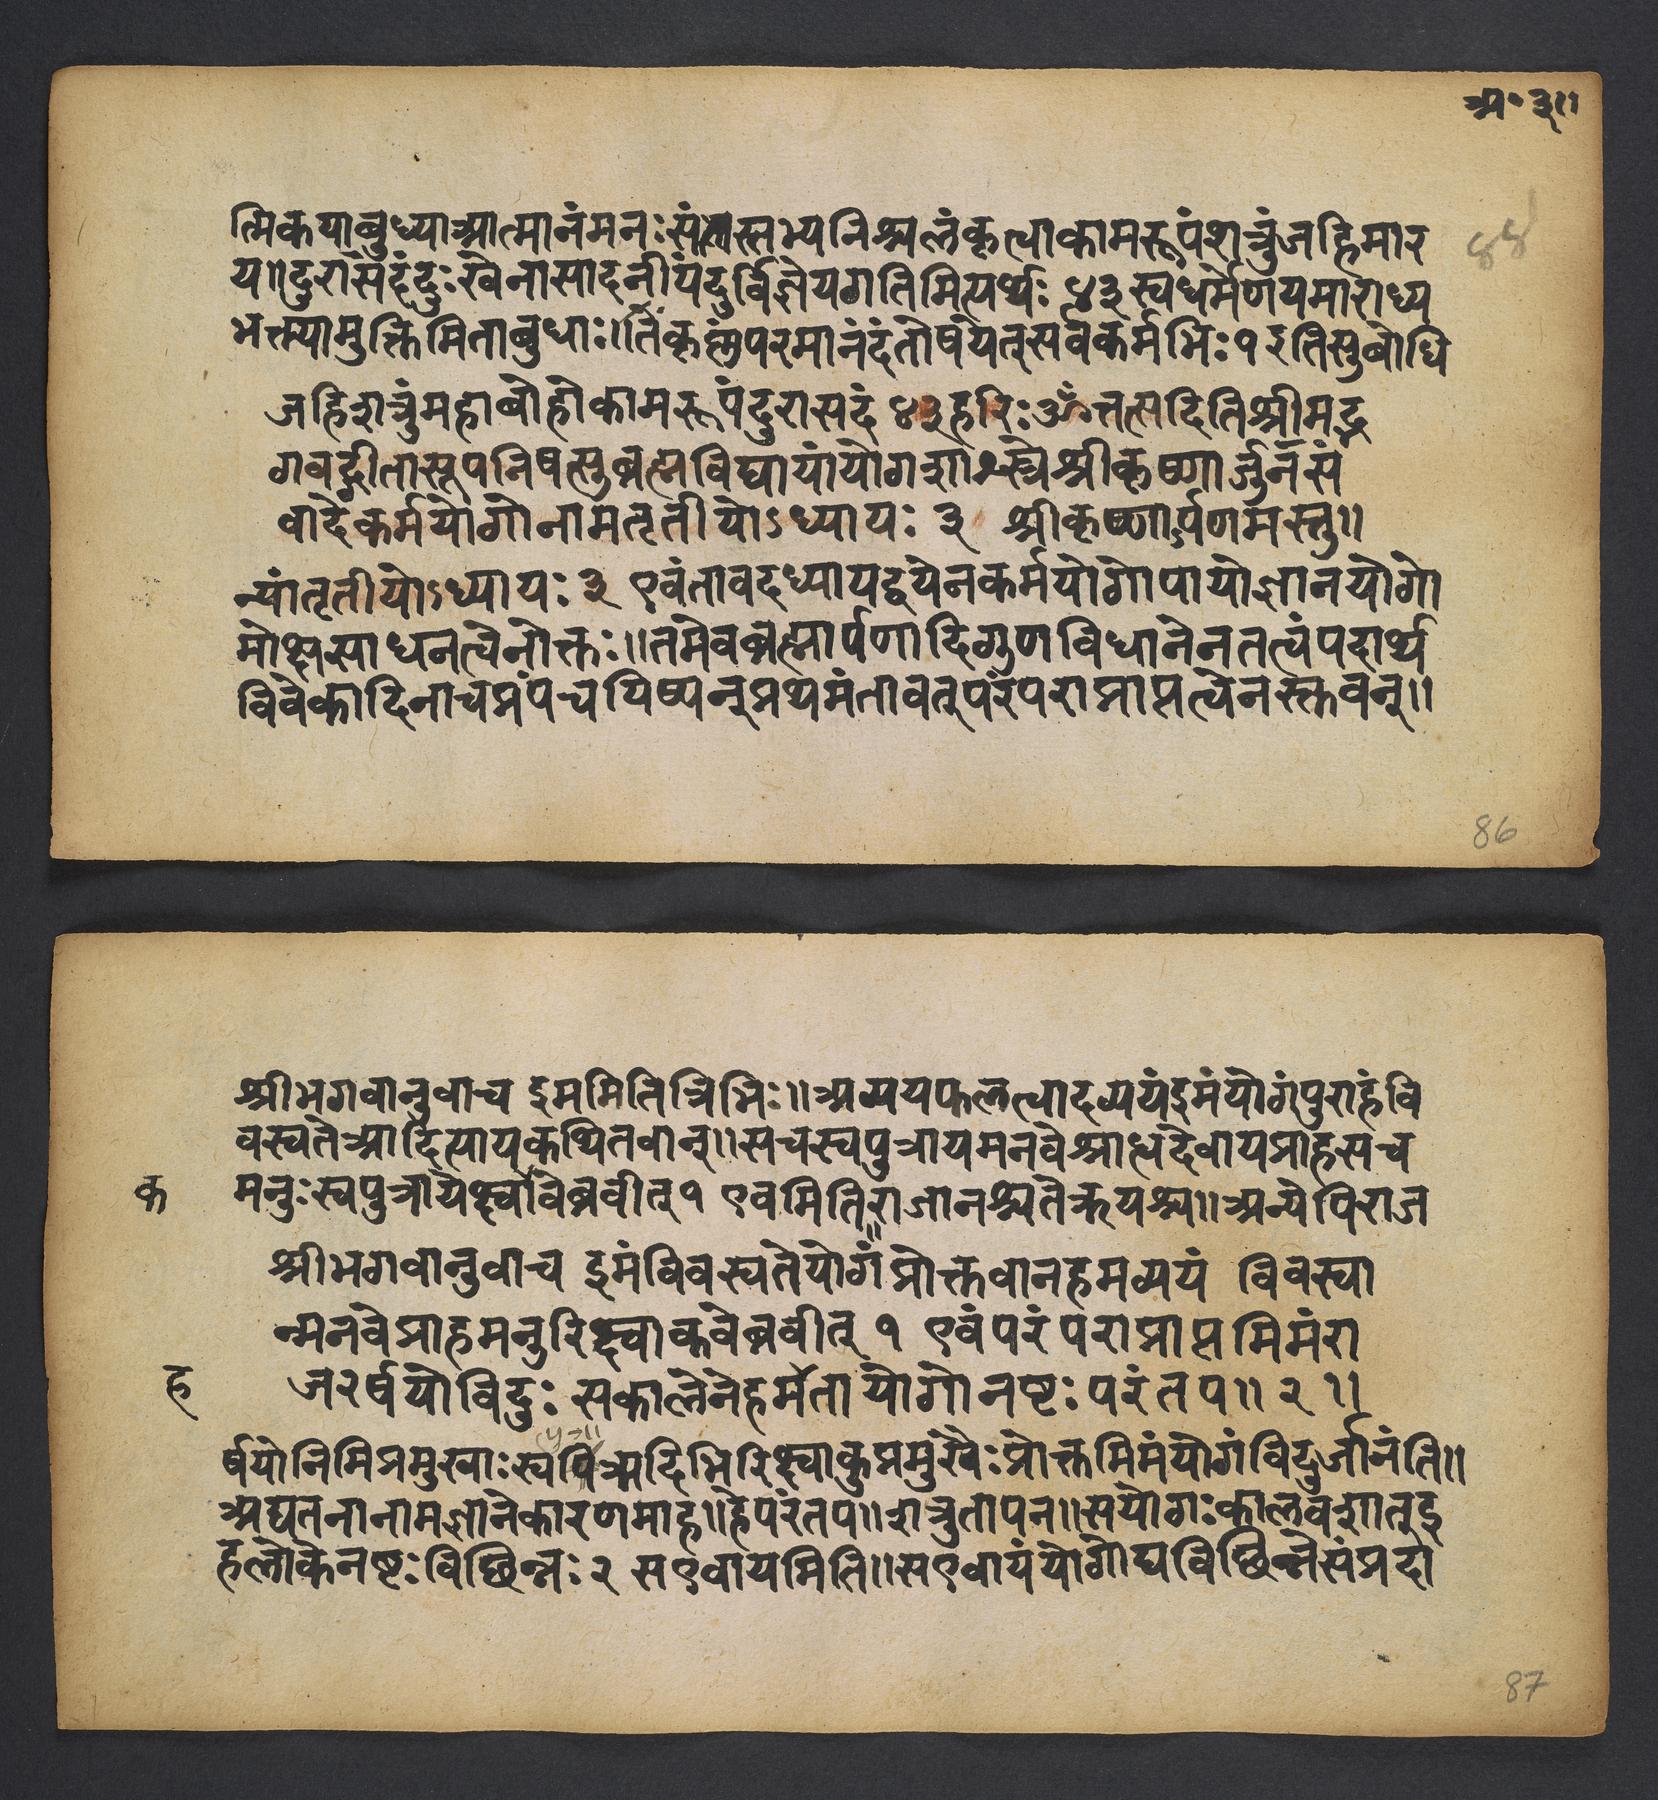 अ॰ ३॥
त्मिकयाबुध्याआत्मानंमनःसंस्तभ्यनिश्चलंकृत्वाकामरूपंशत्रुंजहिमार
य॥दुरासदंदुःखेनासादनीयंदुर्विज्ञेयगतिमित्यर्थः ४३ स्वधर्मेणयमाराध्य
88
भक्त्यामुक्तिमिताबुधाः।तंकृष्णंपरमानंदंतोषयेत्सर्वकर्मभिः१ इतिसुबोधि
जहिशत्रुंमहाबाहोकामरूपंदुरासदं ४३ हरिःॐतत्सदितिश्रीमद्भ
गवद्गीतासूपनिषत्सुब्रह्मविद्यायांयोगशास्त्रेश्रीकृष्णार्जुनसं
वादेकर्मयोगोनामतृतीयोऽध्यायः ३ श्रीकृष्णार्पणमस्तु॥
न्यांतृतीयोऽध्यायः ३ एवंतावदध्यायद्वयेनकर्मयोगोपायोज्ञानयोगो
मोक्षसाधनत्वेनोक्तः॥तमेवब्रह्मार्पणादिगुणविधानेनतत्वंपदार्थ
विवेकादिनाचप्रंपचयिष्यन्प्रथमंतावत्परंपराप्राप्तत्वेनस्तवन्॥
86
श्रीभगवानुवाच इममितित्रिभिः॥अव्ययफलत्वादव्ययंइमंयोगंपुराहंवि
वस्वतेआदित्यायकथितवान्॥सचस्वपुत्रायमनवेश्राद्धदेवायप्राहसच
क मनुःस्वपुत्रायेक्ष्वावेब्रवीत्१ एवमितिराजानश्चतेऋषयश्च॥अन्येपिराज
श्रीभगवानुवाच इमंविवस्वतेयोगं॥प्रोक्तवानहमव्ययं विवस्वा
न्मनवेप्राहमनुरिक्ष्वाकवेब्रवीत् १ एवंपरंपराप्राप्तमिमंरा
ह जर्षयोविदुः सकालेनेहमतायोगोनष्टःपरंतप॥ २ ॥
र्षयोनिमिप्रमुखाःस्वपित्रादिभिरिक्ष्वाकुप्रमुखैःप्रोक्तमिमंयोगंविदुर्जानंति॥
अद्यतनानामज्ञानेकारणमाह॥हेपरंतप॥शत्रुतापन॥सयोगःकालवशात्इ
हलोकेनष्टःविछिन्नः २ सएवायमिति॥सएवायंयोगोद्यविछिन्नेसंप्रदा
87